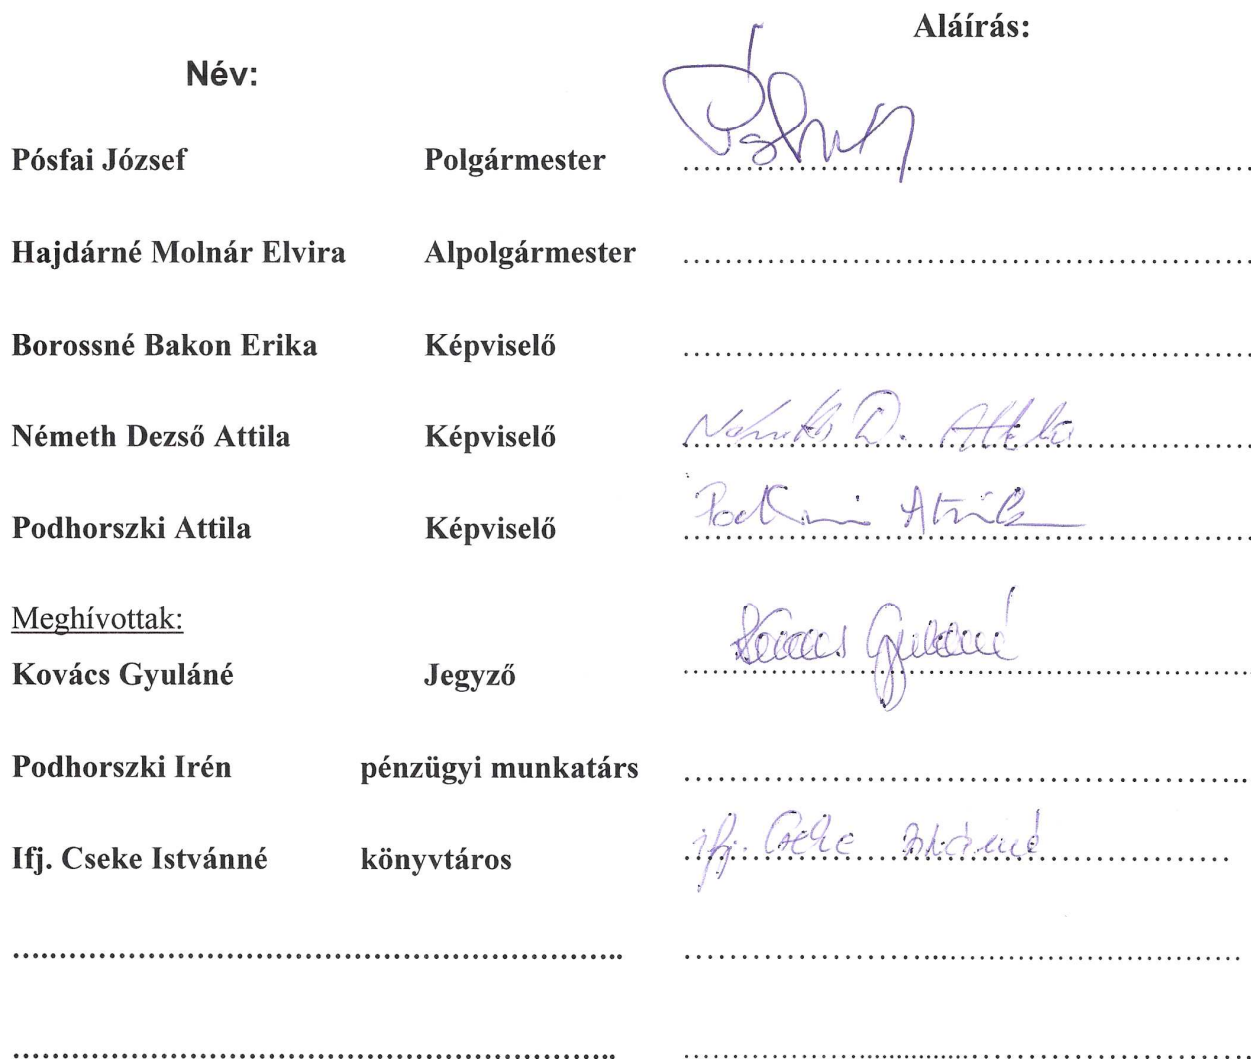 Aláírás:
Név:
Pósfai József Polgármester
Hajdárné Molnár Elvira Alpolgármester
Borossné Bakon Erika Képviselő
Németh Dezső Attila Képviselő Németh D. Attila
Podhorszki Attila Képviselő
Meghívottak:
Kovács Gyuláné Jegyző Kovács Gyuláné
Podhorszki Irén pénzügyi munkatárs
Ifj. Cseke Istvánné könyvtáros ifj. Cseke Istvánné